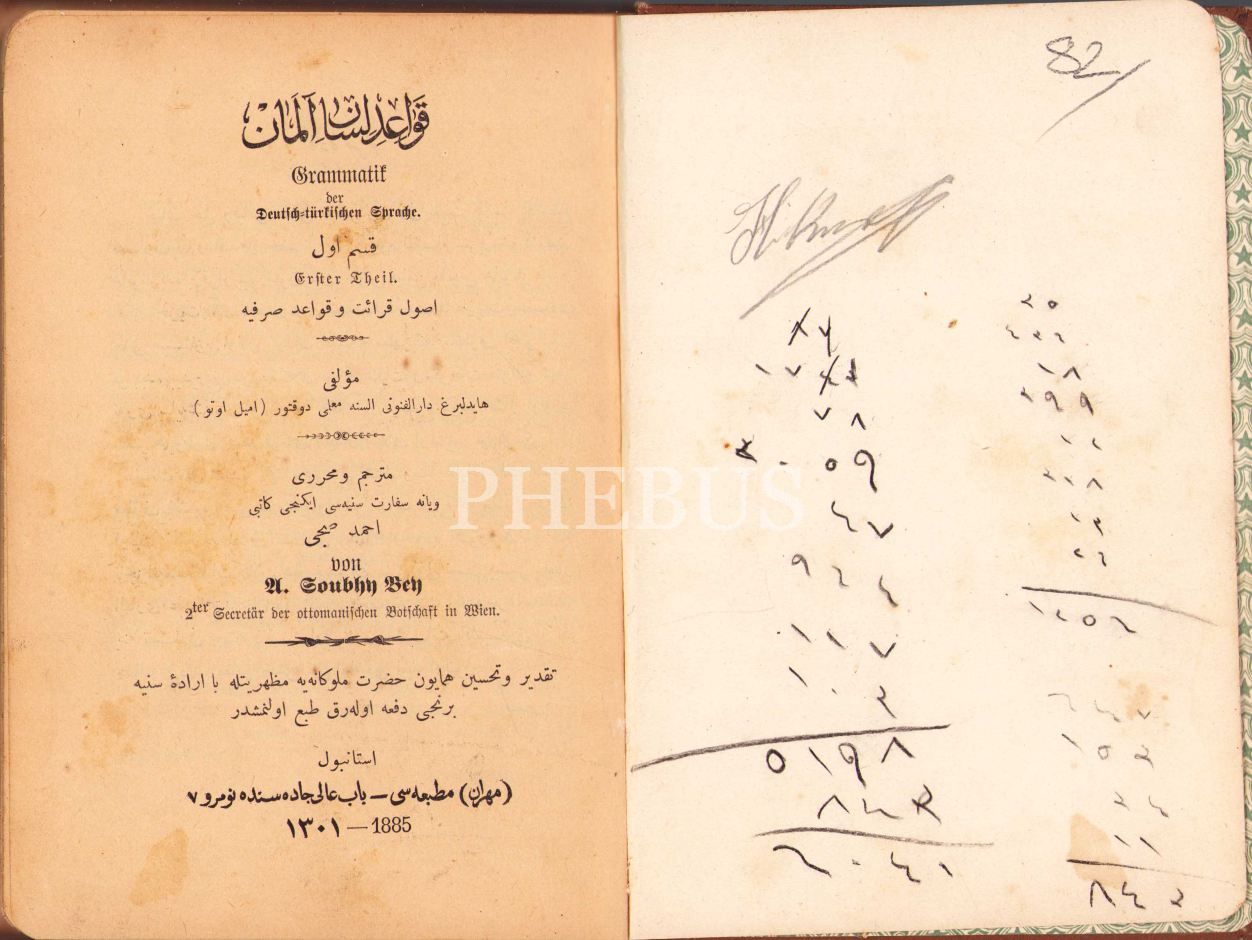 قواعد لسان آلمان
Grammatik
der
Deutsch-türkischen Sprache.
قسم اول
Erster Theil.
اصول قرائت و قواعد صرفیه
مؤلفی
هایدلبرغ دارالفنونی السنه معلمی دوقتور (امیل اوتو)
مترجم ومحرری
ویانه سفارت سنیه‌سی ایکنجی کاتبی
احمد صبحی
von
A. Soubhy Bey
2ter Secretär der ottomanischen Botschaft in Wien.
تقدیر وتحسین همایون حضرت ملوکانه‌یه مظهریتله با ارادهٔ سنیه
برنجی دفعه اوله‌رق طبع اولنمشدر
استانبول
(مهران) مطبعه‌سی — باب عالی جاده سنده نومرو ٧
١٣٠١ — 1885
PHEBUS
82
Hikmet
٧٨
٢٠٥٩
٤٧
٩٦٤
١١٧
١٠٣
٥١٩٨
٨٤٣
٦٠٤١
٢٥
١٨
٢٩٩
١٣
٢٦
١٤٥٦
١٥٣
٣٤
١١
٨٤٣